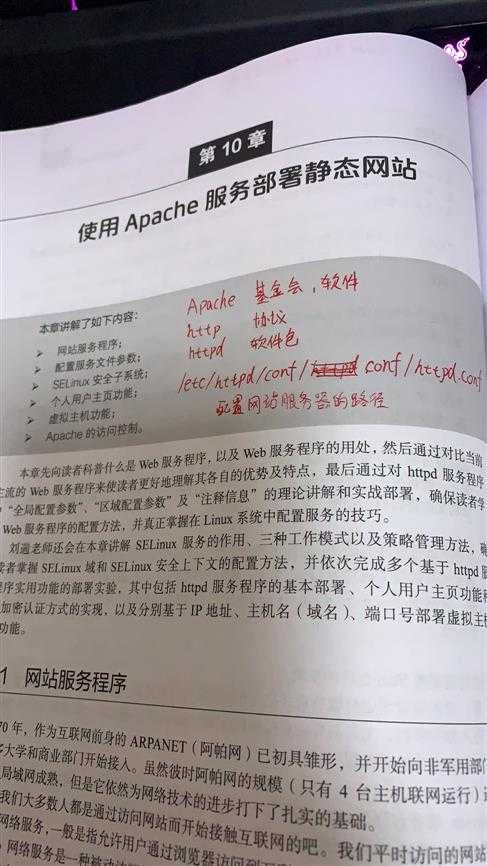 第 10 章
使用 Apache 服务部署静态网站
本章讲解了如下内容：
➢ 网站服务程序；
➢ 配置服务文件参数；
➢ SELinux 安全子系统；
➢ 个人用户主页功能；
➢ 虚拟主机功能；
➢ Apache 的访问控制。
Apache 基金会，软件
http 协议
httpd 软件包
/etc/httpd/conf/ conf/httpd.conf
配置网站服务器的路径
本章先向读者科普什么是 Web 服务程序，以及 Web 服务程序的用处，然后通过对比当前
主流的 Web 服务程序来使读者更好地理解其各自的优势及特点，最后通过对 httpd 服务程序
“全局配置参数”、“区域配置参数”及“注释信息”的理论讲解和实战部署，确保读者学
Web 服务程序的配置方法，并真正掌握在 Linux 系统中配置服务的技巧。
刘遄老师还会在本章讲解 SELinux 服务的作用、三种工作模式以及策略管理方法，确
读者掌握 SELinux 域和 SELinux 安全上下文的配置方法，并依次完成多个基于 httpd 服
程序实用功能的部署实验，其中包括 httpd 服务程序的基本部署、个人用户主页功能和
加密认证方式的实现，以及分别基于 IP 地址、主机名（域名）、端口号部署虚拟主机
功能。
1 网站服务程序
70 年，作为互联网前身的 ARPANET（阿帕网）已初具雏形，并开始向非军用部门
大学和商业部门开始接入。虽然彼时阿帕网的规模（只有 4 台主机联网运行）
局域网成熟，但是它依然为网络技术的进步打下了扎实的基础。
我们大多数人都是通过访问网站而开始接触互联网的吧。我们平时访问的网站
网络服务，一般是指允许用户通过浏览器访问到
网络服务是一种被动